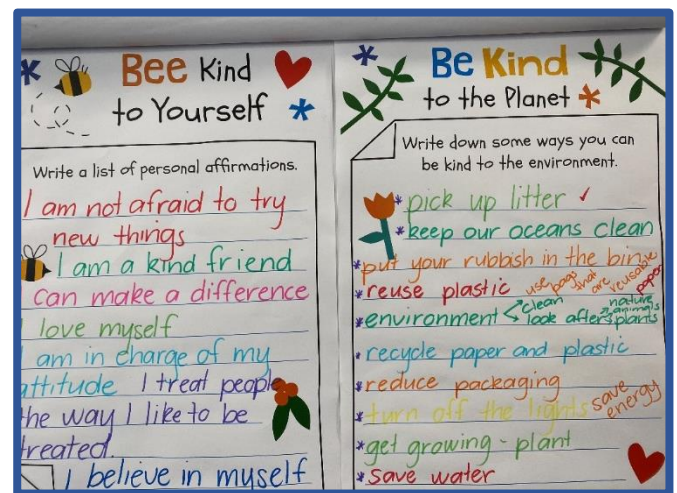 Bee Kind
to Yourself
Write a list of personal affirmations.
I am not afraid to try
new things
I am a kind friend
can make a difference
love myself
am in charge of my
attitude I treat people
the way I like to be
treated.
I believe in myself
Be Kind
to the Planet
Write down some ways you can
be kind to the environment.
* pick up litter ✓
* keep our oceans clean
* put your rubbish in the bin
* reuse plastic use bags that are reusable paper
* environment < clean
look after → nature animals plants
* recycle paper and plastic
* reduce packaging
* turn off the lights save energy
* get growing - plant
* save water